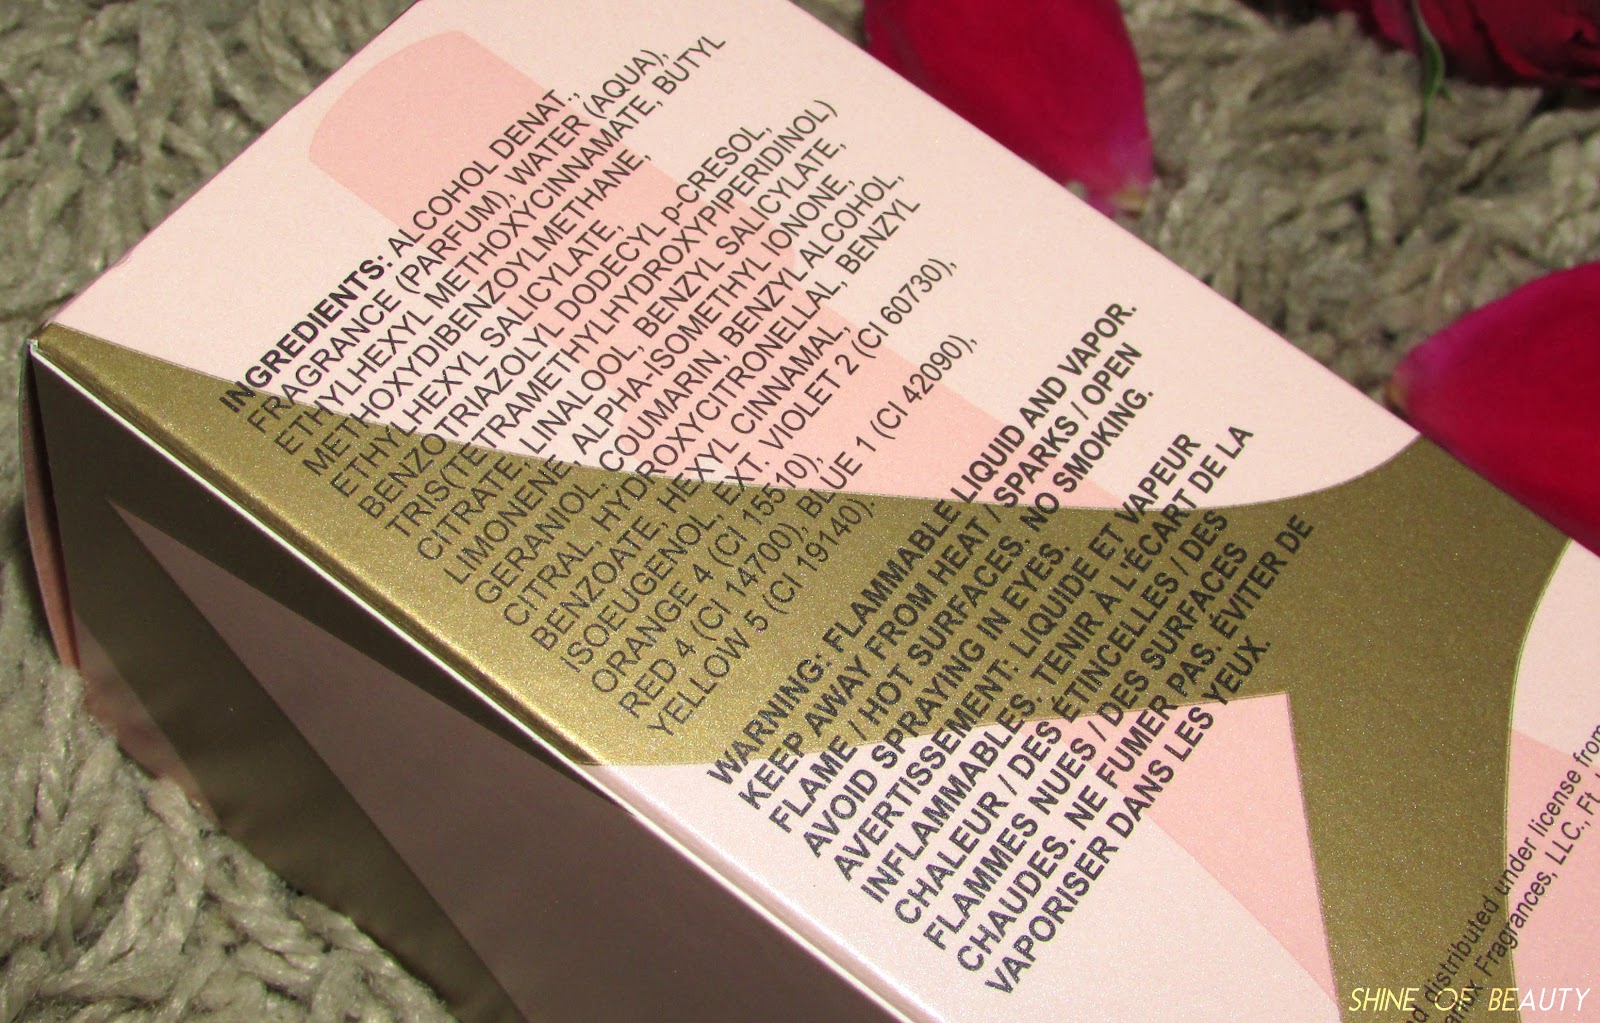 INGREDIENTS: ALCOHOL DENAT.,
FRAGRANCE (PARFUM), WATER (AQUA),
ETHYLHEXYL METHOXYCINNAMATE, BUTYL
METHOXYDIBENZOYLMETHANE,
ETHYLHEXYL SALICYLATE,
BENZOTRIAZOLYL DODECYL p-CRESOL,
TRIS(TETRAMETHYLHYDROXYPIPERIDINOL)
CITRATE, LINALOOL, BENZYL SALICYLATE,
LIMONENE, ALPHA-ISOMETHYL IONONE,
GERANIOL, COUMARIN, BENZYL ALCOHOL,
CITRAL, HYDROXYCITRONELLAL, BENZYL
BENZOATE, HEXYL CINNAMAL,
ISOEUGENOL, EXT. VIOLET 2 (CI 60730),
ORANGE 4 (CI 15510),
RED 4 (CI 14700), BLUE 1 (CI 42090),
YELLOW 5 (CI 19140).
WARNING: FLAMMABLE LIQUID AND VAPOR.
KEEP AWAY FROM HEAT / SPARKS / OPEN
FLAME / HOT SURFACES. NO SMOKING.
AVOID SPRAYING IN EYES.
AVERTISSEMENT: LIQUIDE ET VAPEUR
INFLAMMABLES. TENIR À L'ÉCART DE LA
CHALEUR / DES ÉTINCELLES / DES
FLAMMES NUES / DES SURFACES
CHAUDES. NE FUMER PAS. ÉVITER DE
VAPORISER DANS LES YEUX.
distributed under license from
Fragrances, LLC., Ft.
SHINE OF BEAUTY